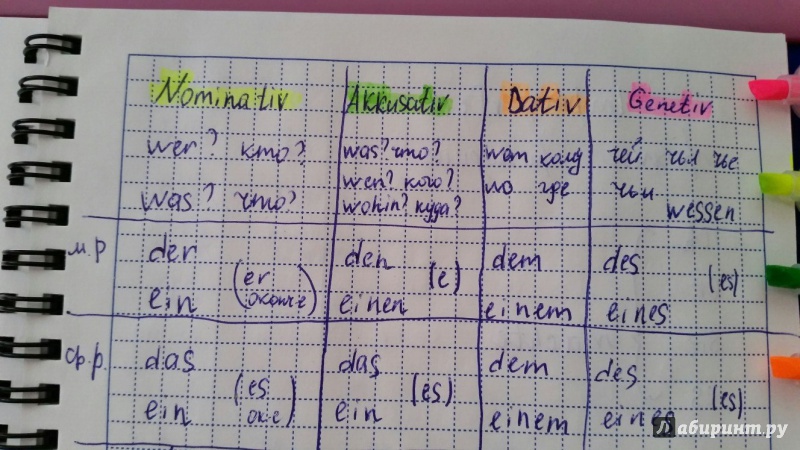 Nominativ Akkusativ Dativ Genetiv
wer? кто? was? что? wem кому чей чья чье
wen? кого? wo где чьи
was? что? wohin? куда? wessen
м.р der (er den (e) dem des (es)
ein einen einem eines
ср.р. das (es das (es) dem des (es)
ein ein einem eines
Лабиринт.ру